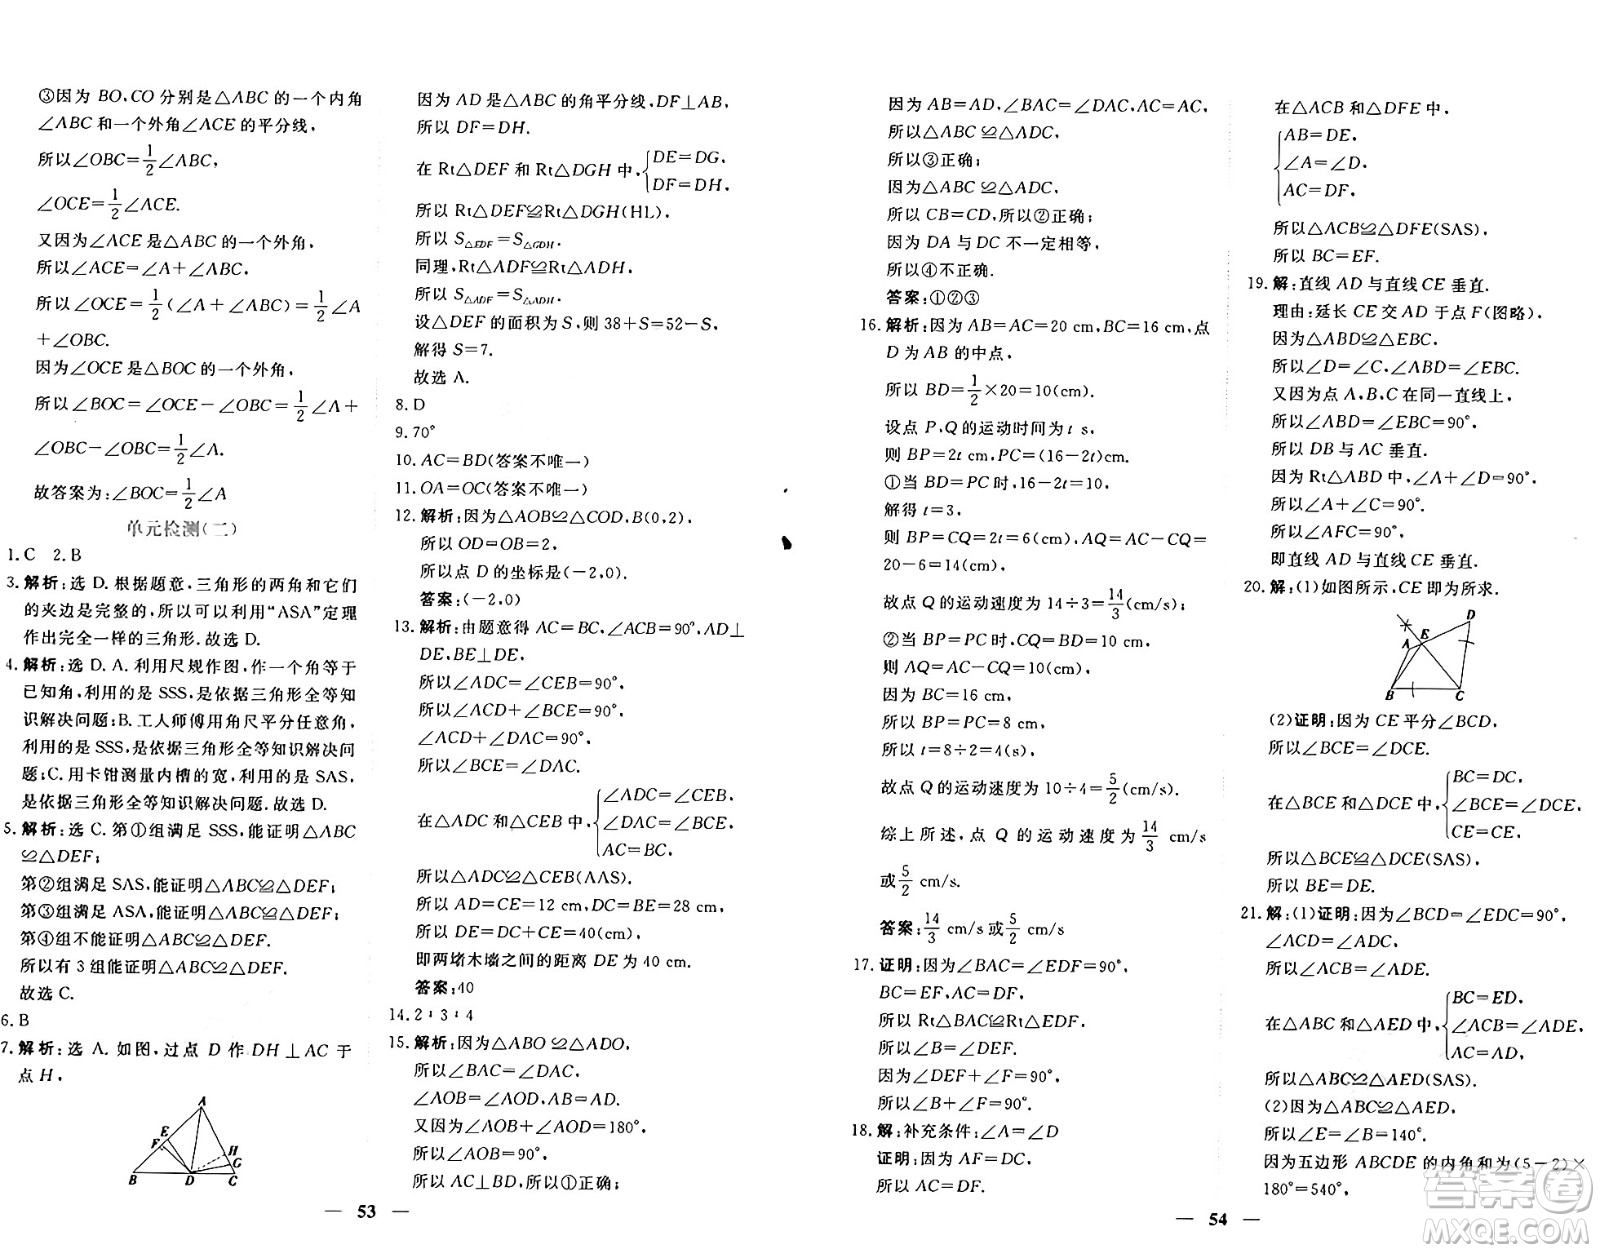 ③因为 BO,CO 分别是△ABC 的一个内角
∠ABC 和一个外角∠ACE 的平分线,
所以∠OBC=1/2∠ABC,
∠OCE=1/2∠ACE.
又因为∠ACE 是△ABC 的一个外角,
所以∠ACE=∠A+∠ABC,
所以∠OCE=1/2(∠A+∠ABC)=1/2∠A
+∠OBC.
因为∠OCE 是△BOC 的一个外角,
所以∠BOC=∠OCE-∠OBC=1/2∠A+
∠OBC-∠OBC=1/2∠A.
故答案为:∠BOC=1/2∠A
单元检测(二)
1.C 2.B
3.解析:选 D.根据题意,三角形的两角和它们
的夹边是完整的,所以可以利用“ASA”定理
作出完全一样的三角形.故选 D.
4.解析:选 D.A.利用尺规作图,作一个角等于
已知角,利用的是 SSS,是依据三角形全等知
识解决问题;B.工人师傅用角尺平分任意角,
利用的是 SSS,是依据三角形全等知识解决问
题;C.用卡钳测量内槽的宽,利用的是 SAS,
是依据三角形全等知识解决问题.故选 D.
5.解析:选 C.第①组满足 SSS,能证明△ABC
≌△DEF;
第②组满足 SAS,能证明△ABC≌△DEF;
第③组满足 ASA,能证明△ABC≌△DEF;
第④组不能证明△ABC≌△DEF.
所以有 3 组能证明△ABC≌△DEF.
故选 C.
6.B
7.解析:选 A.如图,过点 D 作 DH⊥AC 于
点 H,
A
E
F
H
G
B D C
因为 AD 是△ABC 的角平分线,DF⊥AB,
所以 DF=DH.
在 Rt△DEF 和 Rt△DGH 中,{DE=DG,
DF=DH,
所以 Rt△DEF≌Rt△DGH(HL),
所以 S△EDF=S△GDH.
同理,Rt△ADF≌Rt△ADH,
所以 S△ADF=S△ADH,
设△DEF 的面积为 S,则 38+S=52-S,
解得 S=7.
故选 A.
8.D
9.70°
10.AC=BD(答案不唯一)
11.OA=OC(答案不唯一)
12.解析:因为△AOB≌△COD,B(0,2),
所以 OD=OB=2,
所以点 D 的坐标是(-2,0).
答案:(-2,0)
13.解析:由题意得 AC=BC,∠ACB=90°,AD⊥
DE,BE⊥DE,
所以∠ADC=∠CEB=90°,
所以∠ACD+∠BCE=90°,
∠ACD+∠DAC=90°,
所以∠BCE=∠DAC.
在△ADC 和△CEB 中,{∠ADC=∠CEB,
∠DAC=∠BCE,
AC=BC,
所以△ADC≌△CEB(AAS),
所以 AD=CE=12 cm,DC=BE=28 cm,
所以 DE=DC+CE=40(cm),
即两堵木墙之间的距离 DE 为 40 cm.
答案:40
14.2∶3∶4
15.解析:因为△ABO≌△ADO,
所以∠BAC=∠DAC,
∠AOB=∠AOD,AB=AD.
又因为∠AOB+∠AOD=180°,
所以∠AOB=90°,
所以 AC⊥BD,所以①正确;
53
因为 AB=AD,∠BAC=∠DAC,AC=AC,
所以△ABC≌△ADC,
所以③正确;
因为△ABC≌△ADC,
所以 CB=CD,所以②正确;
因为 DA 与 DC 不一定相等,
所以④不正确.
答案:①②③
16.解析:因为 AB=AC=20 cm,BC=16 cm,点
D 为 AB 的中点,
所以 BD=1/2×20=10(cm).
设点 P,Q 的运动时间为 t s,
则 BP=2t cm,PC=(16-2t)cm.
①当 BD=PC 时,16-2t=10,
解得 t=3,
则 BP=CQ=2t=6(cm),AQ=AC-CQ=
20-6=14(cm),
故点 Q 的运动速度为 14÷3=14/3(cm/s);
②当 BP=PC 时,CQ=BD=10 cm,
则 AQ=AC-CQ=10(cm),
因为 BC=16 cm,
所以 BP=PC=8 cm,
所以 t=8÷2=4(s),
故点 Q 的运动速度为 10÷4=5/2(cm/s).
综上所述,点 Q 的运动速度为 14/3 cm/s
或 5/2 cm/s.
答案:14/3 cm/s 或 5/2 cm/s
17.证明:因为∠BAC=∠EDF=90°,
BC=EF,AC=DF,
所以 Rt△BAC≌Rt△EDF,
所以∠B=∠DEF.
因为∠DEF+∠F=90°,
所以∠B+∠F=90°.
18.解:补充条件:∠A=∠D
证明:因为 AF=DC,
所以 AC=DF.
54
在△ACB 和△DFE 中,
{AB=DE,
∠A=∠D,
AC=DF,
所以△ACB≌△DFE(SAS),
所以 BC=EF.
19.解:直线 AD 与直线 CE 垂直.
理由:延长 CE 交 AD 于点 F(图略),
因为△ABD≌△EBC,
所以∠D=∠C,∠ABD=∠EBC.
又因为点 A,B,C 在同一直线上,
所以∠ABD=∠EBC=90°,
所以 DB 与 AC 垂直.
因为 Rt△ABD 中,∠A+∠D=90°,
所以∠A+∠C=90°,
所以∠AFC=90°,
即直线 AD 与直线 CE 垂直.
20.解:(1)如图所示,CE 即为所求.
D
E
A
B C
(2)证明:因为 CE 平分∠BCD,
所以∠BCE=∠DCE.
在△BCE 和△DCE 中,{BC=DC,
∠BCE=∠DCE,
CE=CE,
所以△BCE≌△DCE(SAS),
所以 BE=DE.
21.解:(1)证明:因为∠BCD=∠EDC=90°,
∠ACD=∠ADC,
所以∠ACB=∠ADE.
在△ABC 和△AED 中,{BC=ED,
∠ACB=∠ADE,
AC=AD,
所以△ABC≌△AED(SAS).
(2)因为△ABC≌△AED,
所以∠E=∠B=140°,
因为五边形 ABCDE 的内角和为(5-2)×
180°=540°,
答案圈
MXQE.COM